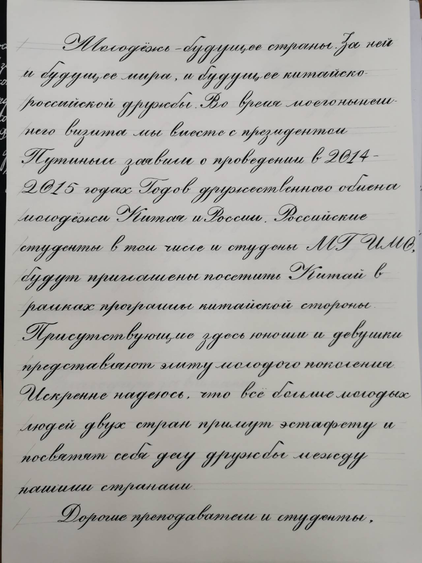 Молодёжь - будущее страны. За ней
и будущее мира, и будущее китайско-
российской дружбы. Во время моего нынеш-
него визита мы вместе с президентом
Путиным заявили о проведении в 2014-
2015 годах Годов дружественного обмена
молодёжи Китая и России. Российские
студенты в том числе и студены МГИМО,
будут приглашены посетить Китай в
рамках программы китайской стороны
Присутствующие здесь юноши и девушки
представляют элиту молодого поколения
Искренне надеюсь, что всё больше молодых
людей двух стран примут эстафету и
посвятят себя делу дружбы между
нашими странами
Дорогие преподаватели и студенты.